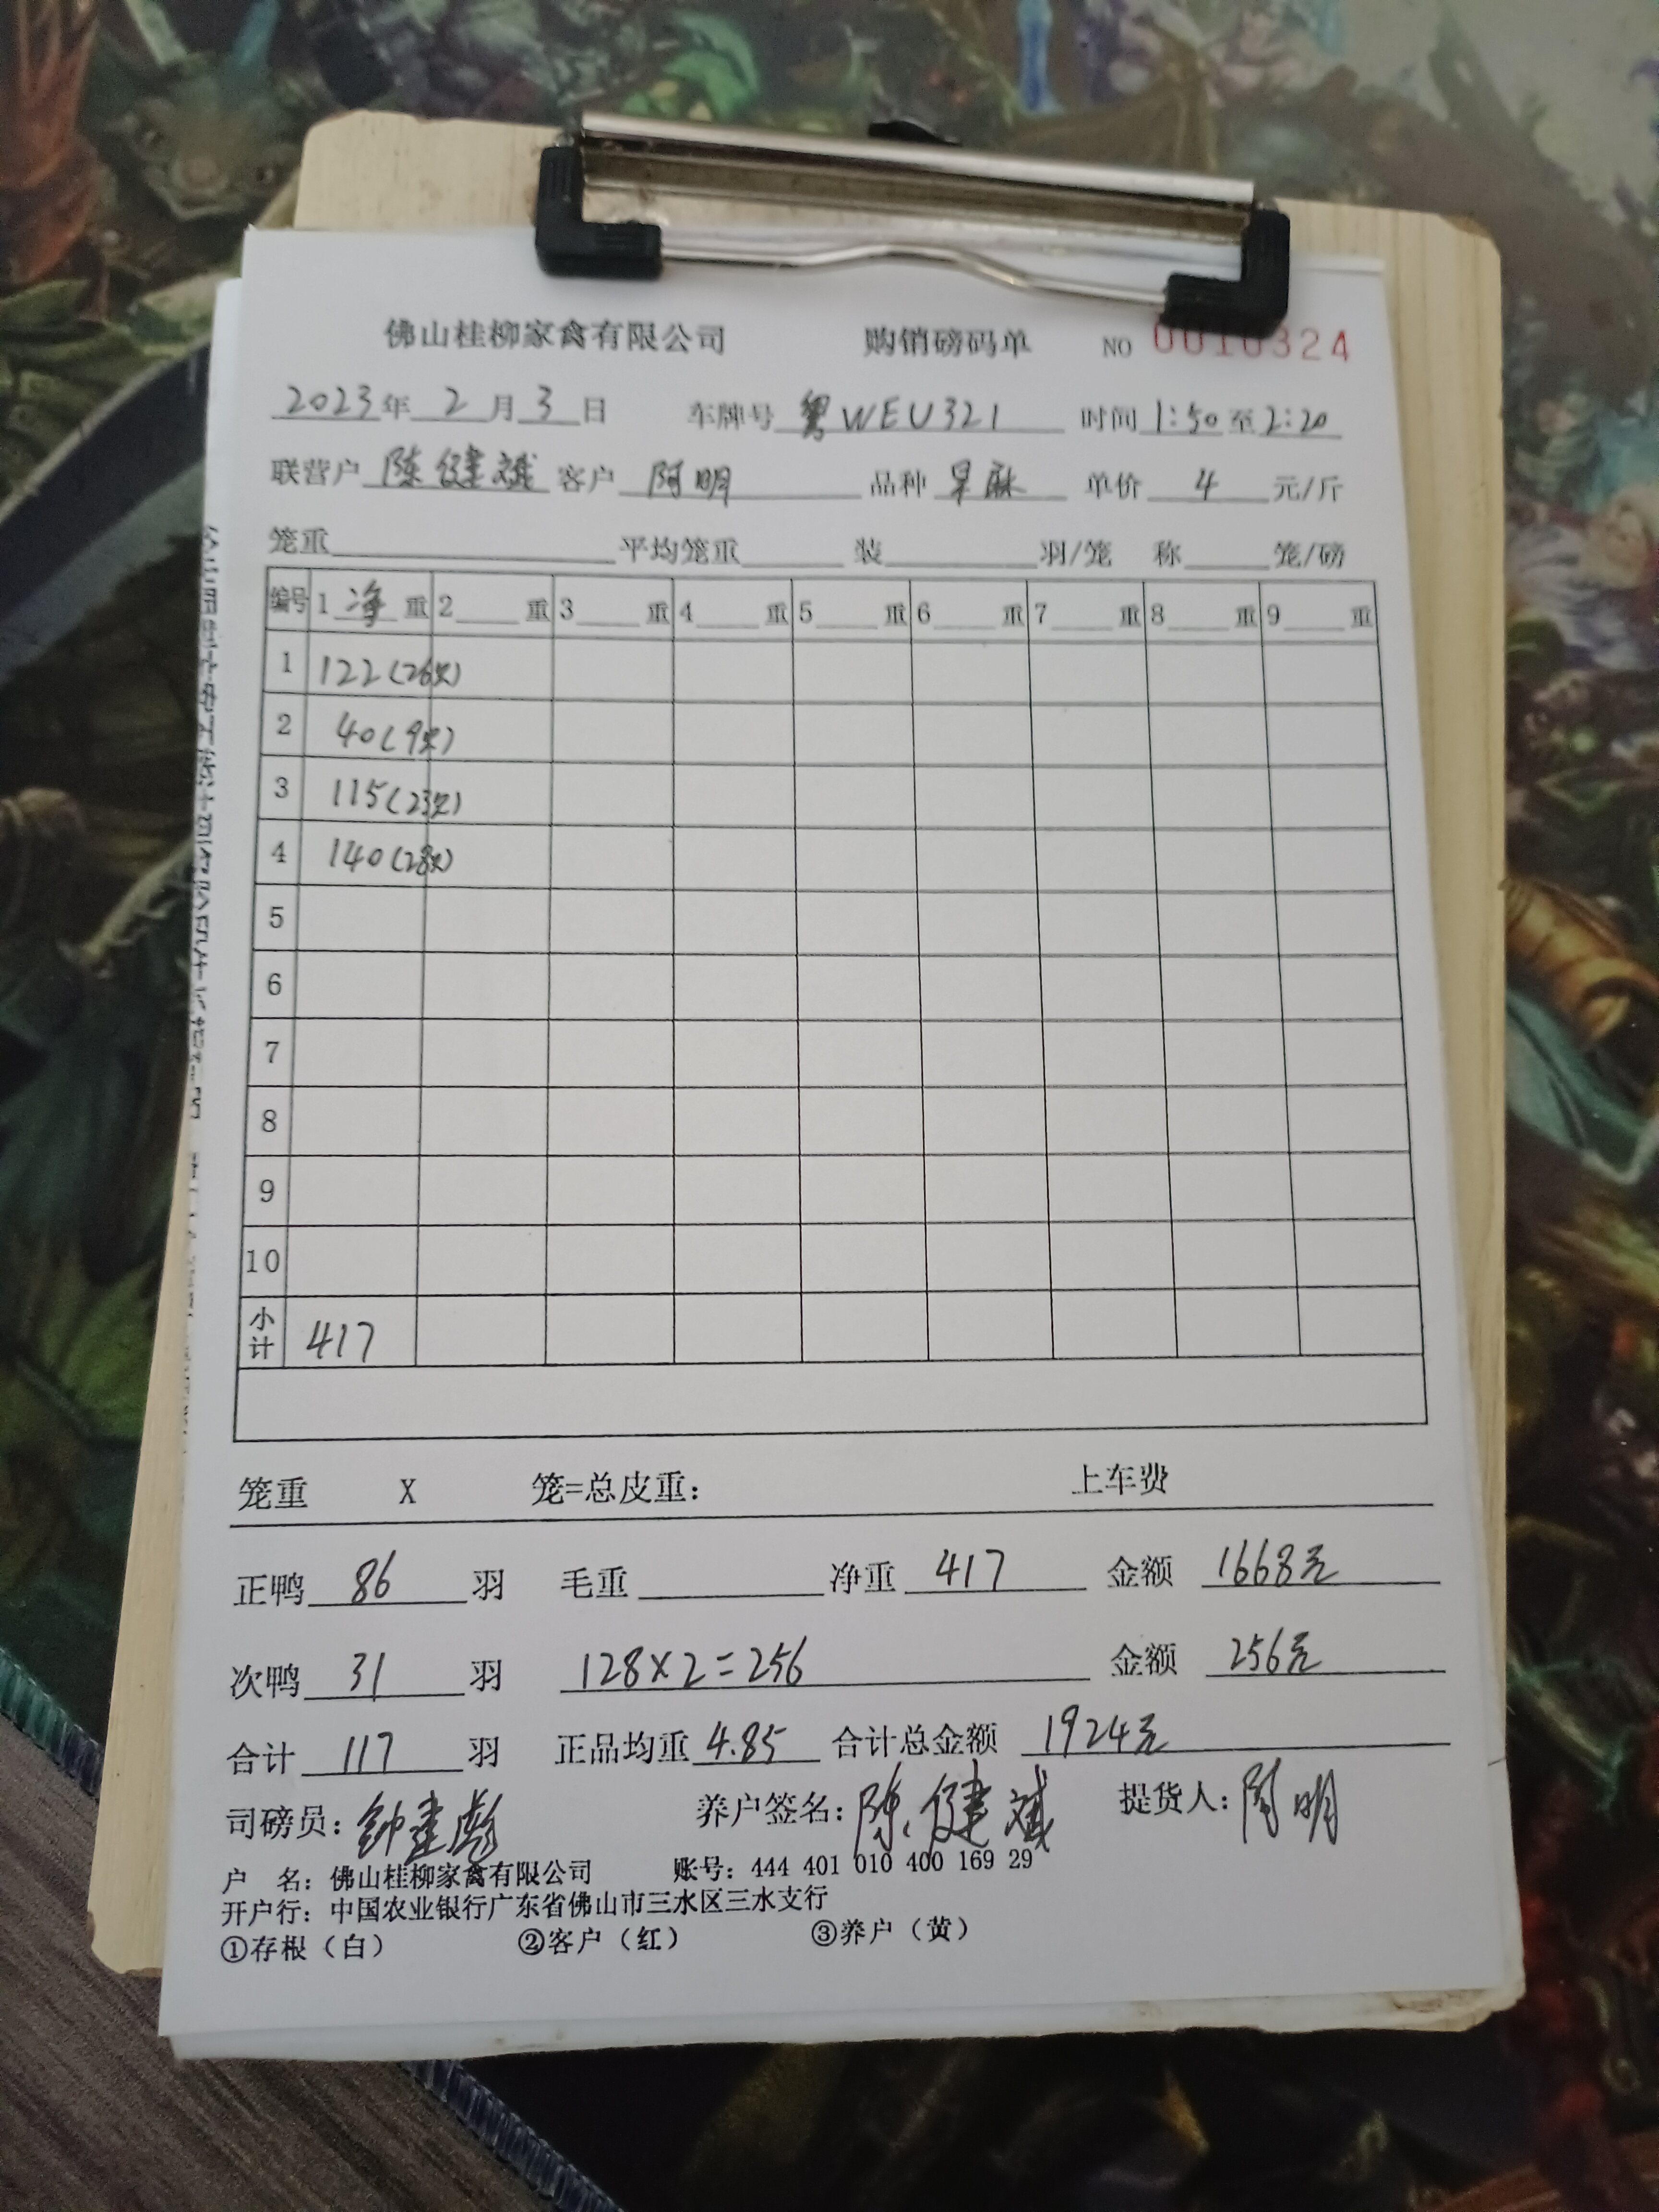 佛山桂柳家禽有限公司 购销磅码单 NO 0010324
2023年 2 月 3 日 车牌号 粤WEU321 时间 1:50 至 2:20
联营户 陈健斌 客户 阿明 品种 单价 4 元/斤
笼重 平均笼重 装 羽/笼 称 笼/磅
编号 1 净 重 2 重 3 重 4 重 5 重 6 重 7 重 8 重 9 重
1 122(26只)
2 40(9只)
3 115(23只)
4 140(28只)
5
6
7
8
9
10
小计 417
笼重 X 笼=总皮重: 上车费
正鸭 86 羽 毛重 净重 417 金额 1668元
次鸭 31 羽 128×2=256 金额 256元
合计 117 羽 正品均重 4.85 合计总金额 1924元
司磅员: 钟建彪 养户签名: 陈健斌 提货人: 阿明
户 名: 佛山桂柳家禽有限公司 账号: 444 401 010 400 169 29
开户行: 中国农业银行广东省佛山市三水区三水支行
①存根（白） ②客户（红） ③养户（黄）